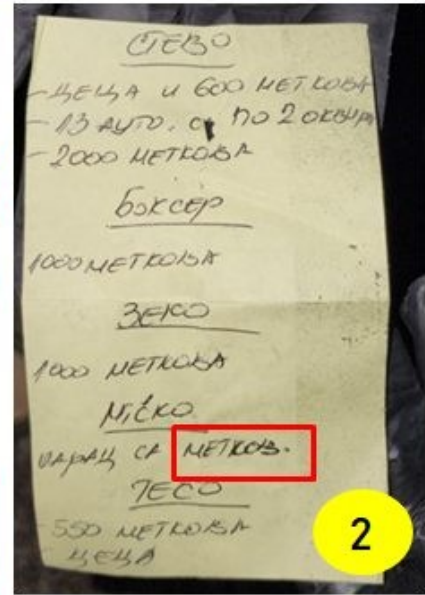 СТЕВО
- ЦЕЦА и 600 МЕТКОВА
- 13 АУТО. СА ПО 2 ОКВИРА
- 2000 МЕТКОВА
БОКСЕР
1000 МЕТКОВА
ЗЕКО
1000 МЕТКОВА
МИЋКО
ШАРАЦ СА МЕТКОВ.
ТЕСО
- 550 МЕТКОВА
- ЦЕЦА
2